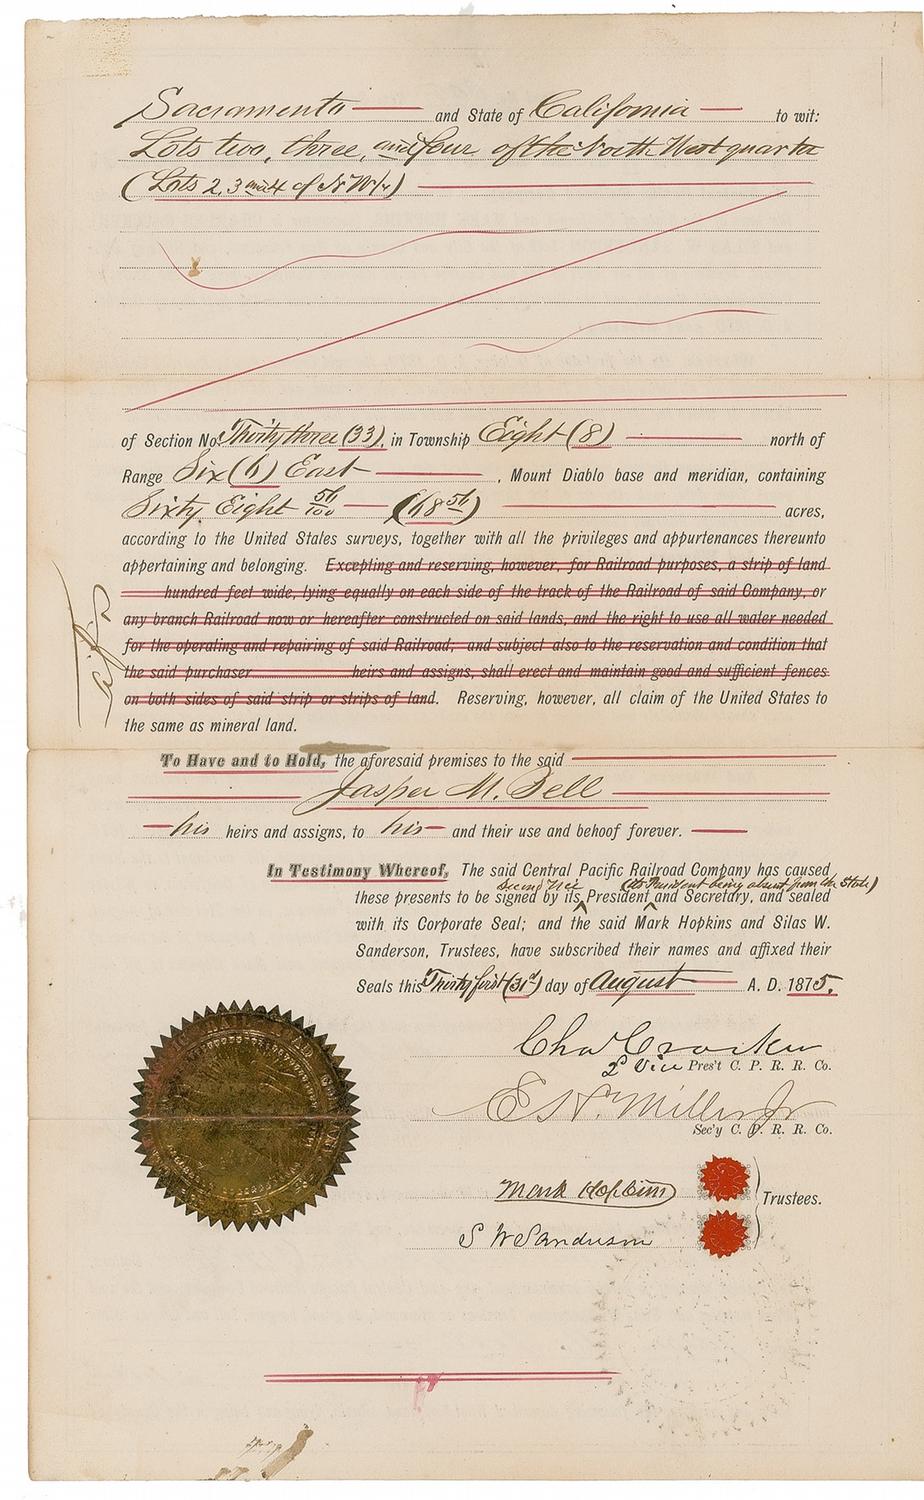 Sacramento and State of California to wit:
Lots two, three, and four of the North West quarter
(Lots 2, 3 and 4 of N W/4)
of Section No. Thirty three (33), in Township Eight (8) north of
Range Six (6) East, Mount Diablo base and meridian, containing
Sixty Eight 56/100 (68 56/) acres,
according to the United States surveys, together with all the privileges and appurtenances thereunto
appertaining and belonging. Excepting and reserving, however, for Railroad purposes, a strip of land
hundred feet wide, lying equally on each side of the track of the Railroad of said Company, or
any branch Railroad now or hereafter constructed on said lands, and the right to use all water needed
for the operating and repairing of said Railroad; and subject also to the reservation and condition that
the said purchaser heirs and assigns, shall erect and maintain good and sufficient fences
on both sides of said strip or strips of land. Reserving, however, all claim of the United States to
the same as mineral land.
To Have and to Hold, the aforesaid premises to the said
Jasper M. Bell
his heirs and assigns, to his and their use and behoof forever.
In Testimony Whereof, The said Central Pacific Railroad Company has caused
Second Vice (its President being absent from the State)
these presents to be signed by its President and Secretary, and sealed
with its Corporate Seal; and the said Mark Hopkins and Silas W.
Sanderson, Trustees, have subscribed their names and affixed their
Seals this Thirty first (31st) day of August A. D. 1875.
Chas Crocker
2d Vice Pres't C. P. R. R. Co.
E H Miller Jr
Sec'y C. P. R. R. Co.
Mark Hopkins
Trustees.
S W Sanderson